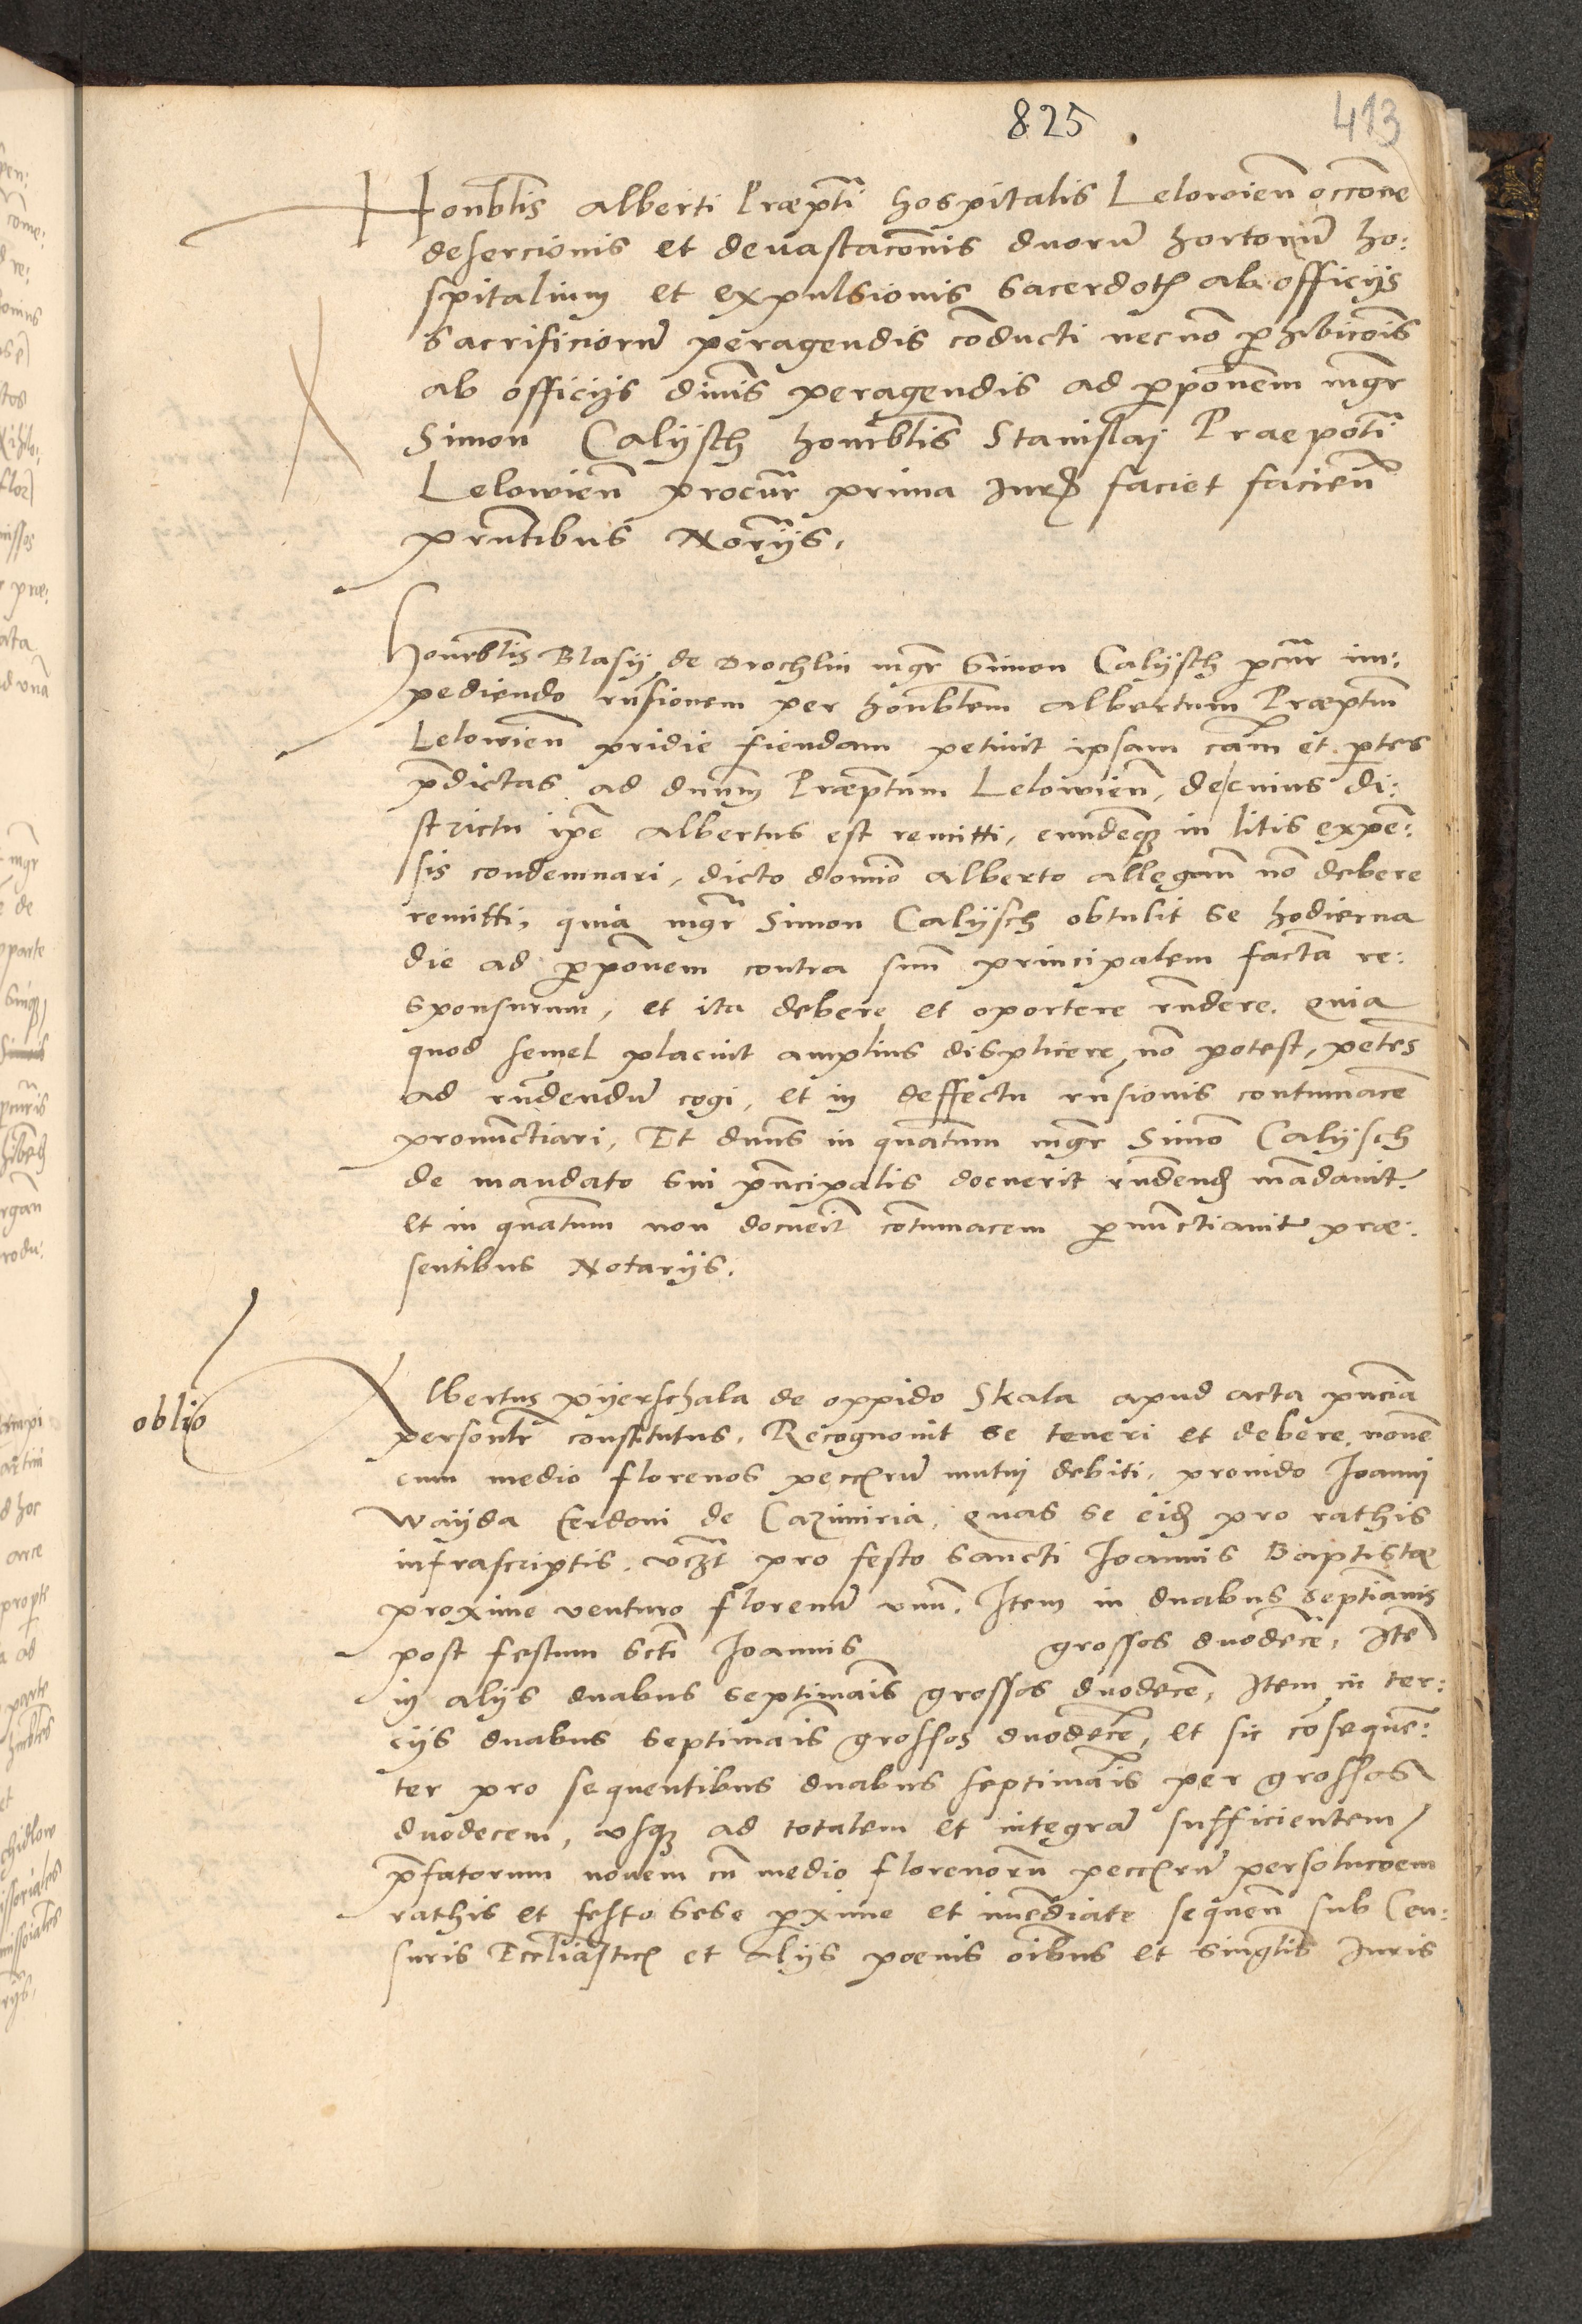 825
413
Honrblis Alberti Præpti hospitalis Lelowien̄ occone
desercionis et deuastacōnis duorū hortorū ho:
spitalium et expulsionis sacerdot. ab officijs
sacrificiorū peragendis cōducti necnō phibicōis
ab officijs diuis peragendis ad pponem mgr
Simon Calijsch honrblis Stanislaj Praepoti
Lelowien̄ procur prima Jured. faciet facien̄
prntibus Norijs.
Honrblis Blasij de Drochlin mgr Simon Calijsch pcur im:
pediendo rnsionem per honrblem Albertum Præptm
Lelowien̄ pridie fiendam petiuit ipsam cam et ptes
pdictas ad dnum Præptum Lelowien̄, de cuius di:
strictu ipe Albertus est remitti, eundemq in litis expē:
sis condemnari, dicto domio Alberto allegan̄ nō debere
remitti, quia mgr Simon Calijsch obtulit se hodierna
die ad pponem contra suū principalem factā re:
sponsurum, et ita debere et oportere rndere. Quia
quod semel placuit amplius displicere nō potest, petēs
ad rndendū cogi, et in deffectu rnsionis contumacē
pronunctiari, Et dnus in quantum mgr Simō Calijsch
de mandato sui pncipalis docuerit rndend. mādauit.
et in quantum non docueit cōtumacem pnunctiauit præ:
sentibus Notarijs.
oblio
Albertus Pijerschala de oppido Skala apud acta pnciā
personlr constitutus. Recognouit se teneri et debere nouē
cum medio florenos peccrū mutui debiti, prouido Joanni
Waijda Cerdoni de Cazimiria, quas se eid. pro rathis
infrascriptis, vczt pro festo sancti Joannis Baptistæ
proxime venturo florenū vnū. Item in duabus septianis
post festum scti Joannis grossos duodecē, Itē
in alijs duabus septimais grossos duodecē, Item in ter:
cijs duabus septimais grossos duodecē, et sic cōsequē:
ter pro sequentibus duabus septimais per grossos
duodecem, vsq ad totalem et integrā sufficientem
pfatorum nouem cū medio florenorū peccrū persolucōem
rathis et festo sese pxime et imediate sequen̄ sub Cen:
suris Eccliastic. et alijs poenis oibus et singlis Juris